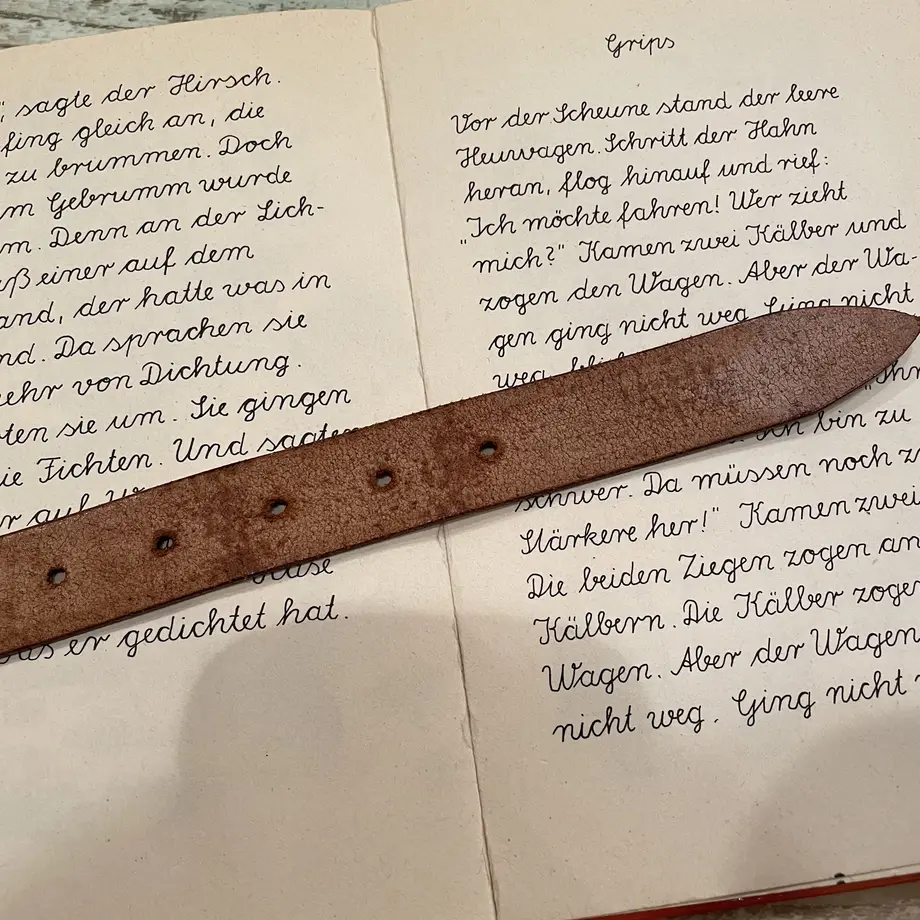 ", sagte der Hirsch.
fing gleich an, die
zu brummen. Doch
m Gebrumm wurde
m. Denn an der Lich-
aß einer auf dem
and, der hatte was in
nd. Da sprachen sie
ehr von Dichtung.
ten sie um. Sie gingen
ie Fichten. Und sagten
r auf
Hase
was er gedichtet hat.
Grips
Vor der Scheune stand der leere
Heuwagen. Schritt der Hahn
heran, flog hinauf und rief:
"Ich möchte fahren! Wer zieht
mich?" Kamen zwei Kälber und
zogen den Wagen. Aber der Wa-
gen ging nicht weg. Ging nicht
weg,
bin zu
schwer. Da müssen noch
Stärkere her!" Kamen zwei
Die beiden Ziegen zogen an
Kälbern. Die Kälber zogen
Wagen. Aber der Wagen
nicht weg. Ging nicht